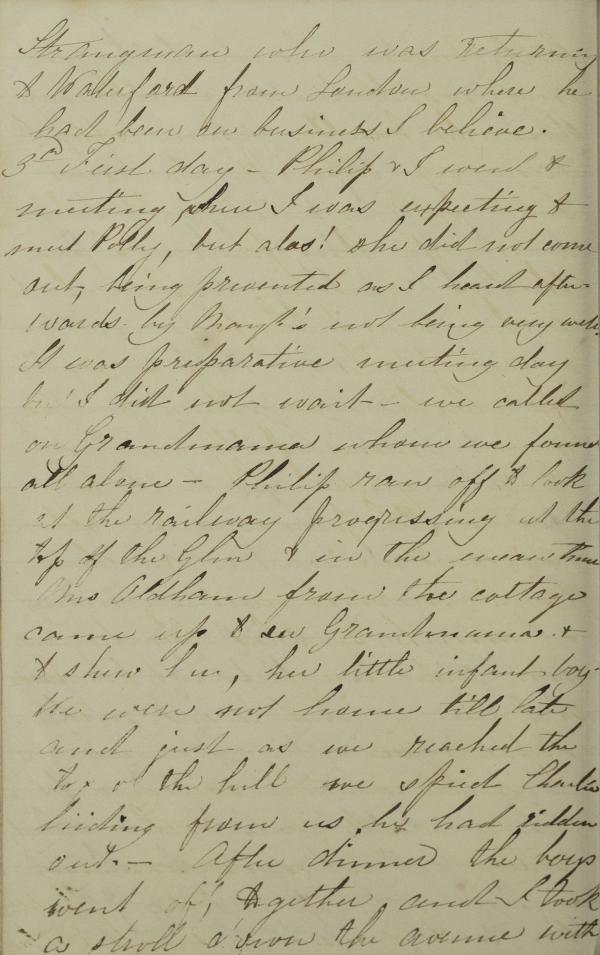 Strangman who was returning
to Waterford from London where he
had been on business I believe.
3rd First day – Philip & I went to
meeting, where I was expecting to
meet Polly, but alas! she did not come
out, being prevented as I heard after-
wards by Margt's not being very well.
It was preparative meeting day
but I did not wait – we called
on Grandmama whom we found
all alone – Philip ran off to look
at the railway progressing at the
top of the Glen & in the mean time
Mrs Oldham from the cottage
came up to see Grandmama &
to shew her, her little infant boy.
We were not home till late
and just as we reached the
top of the hill we spied Charlie
hiding from us, he had ridden
out. – After dinner the boys
went off, together and I took
a stroll down the avenue with